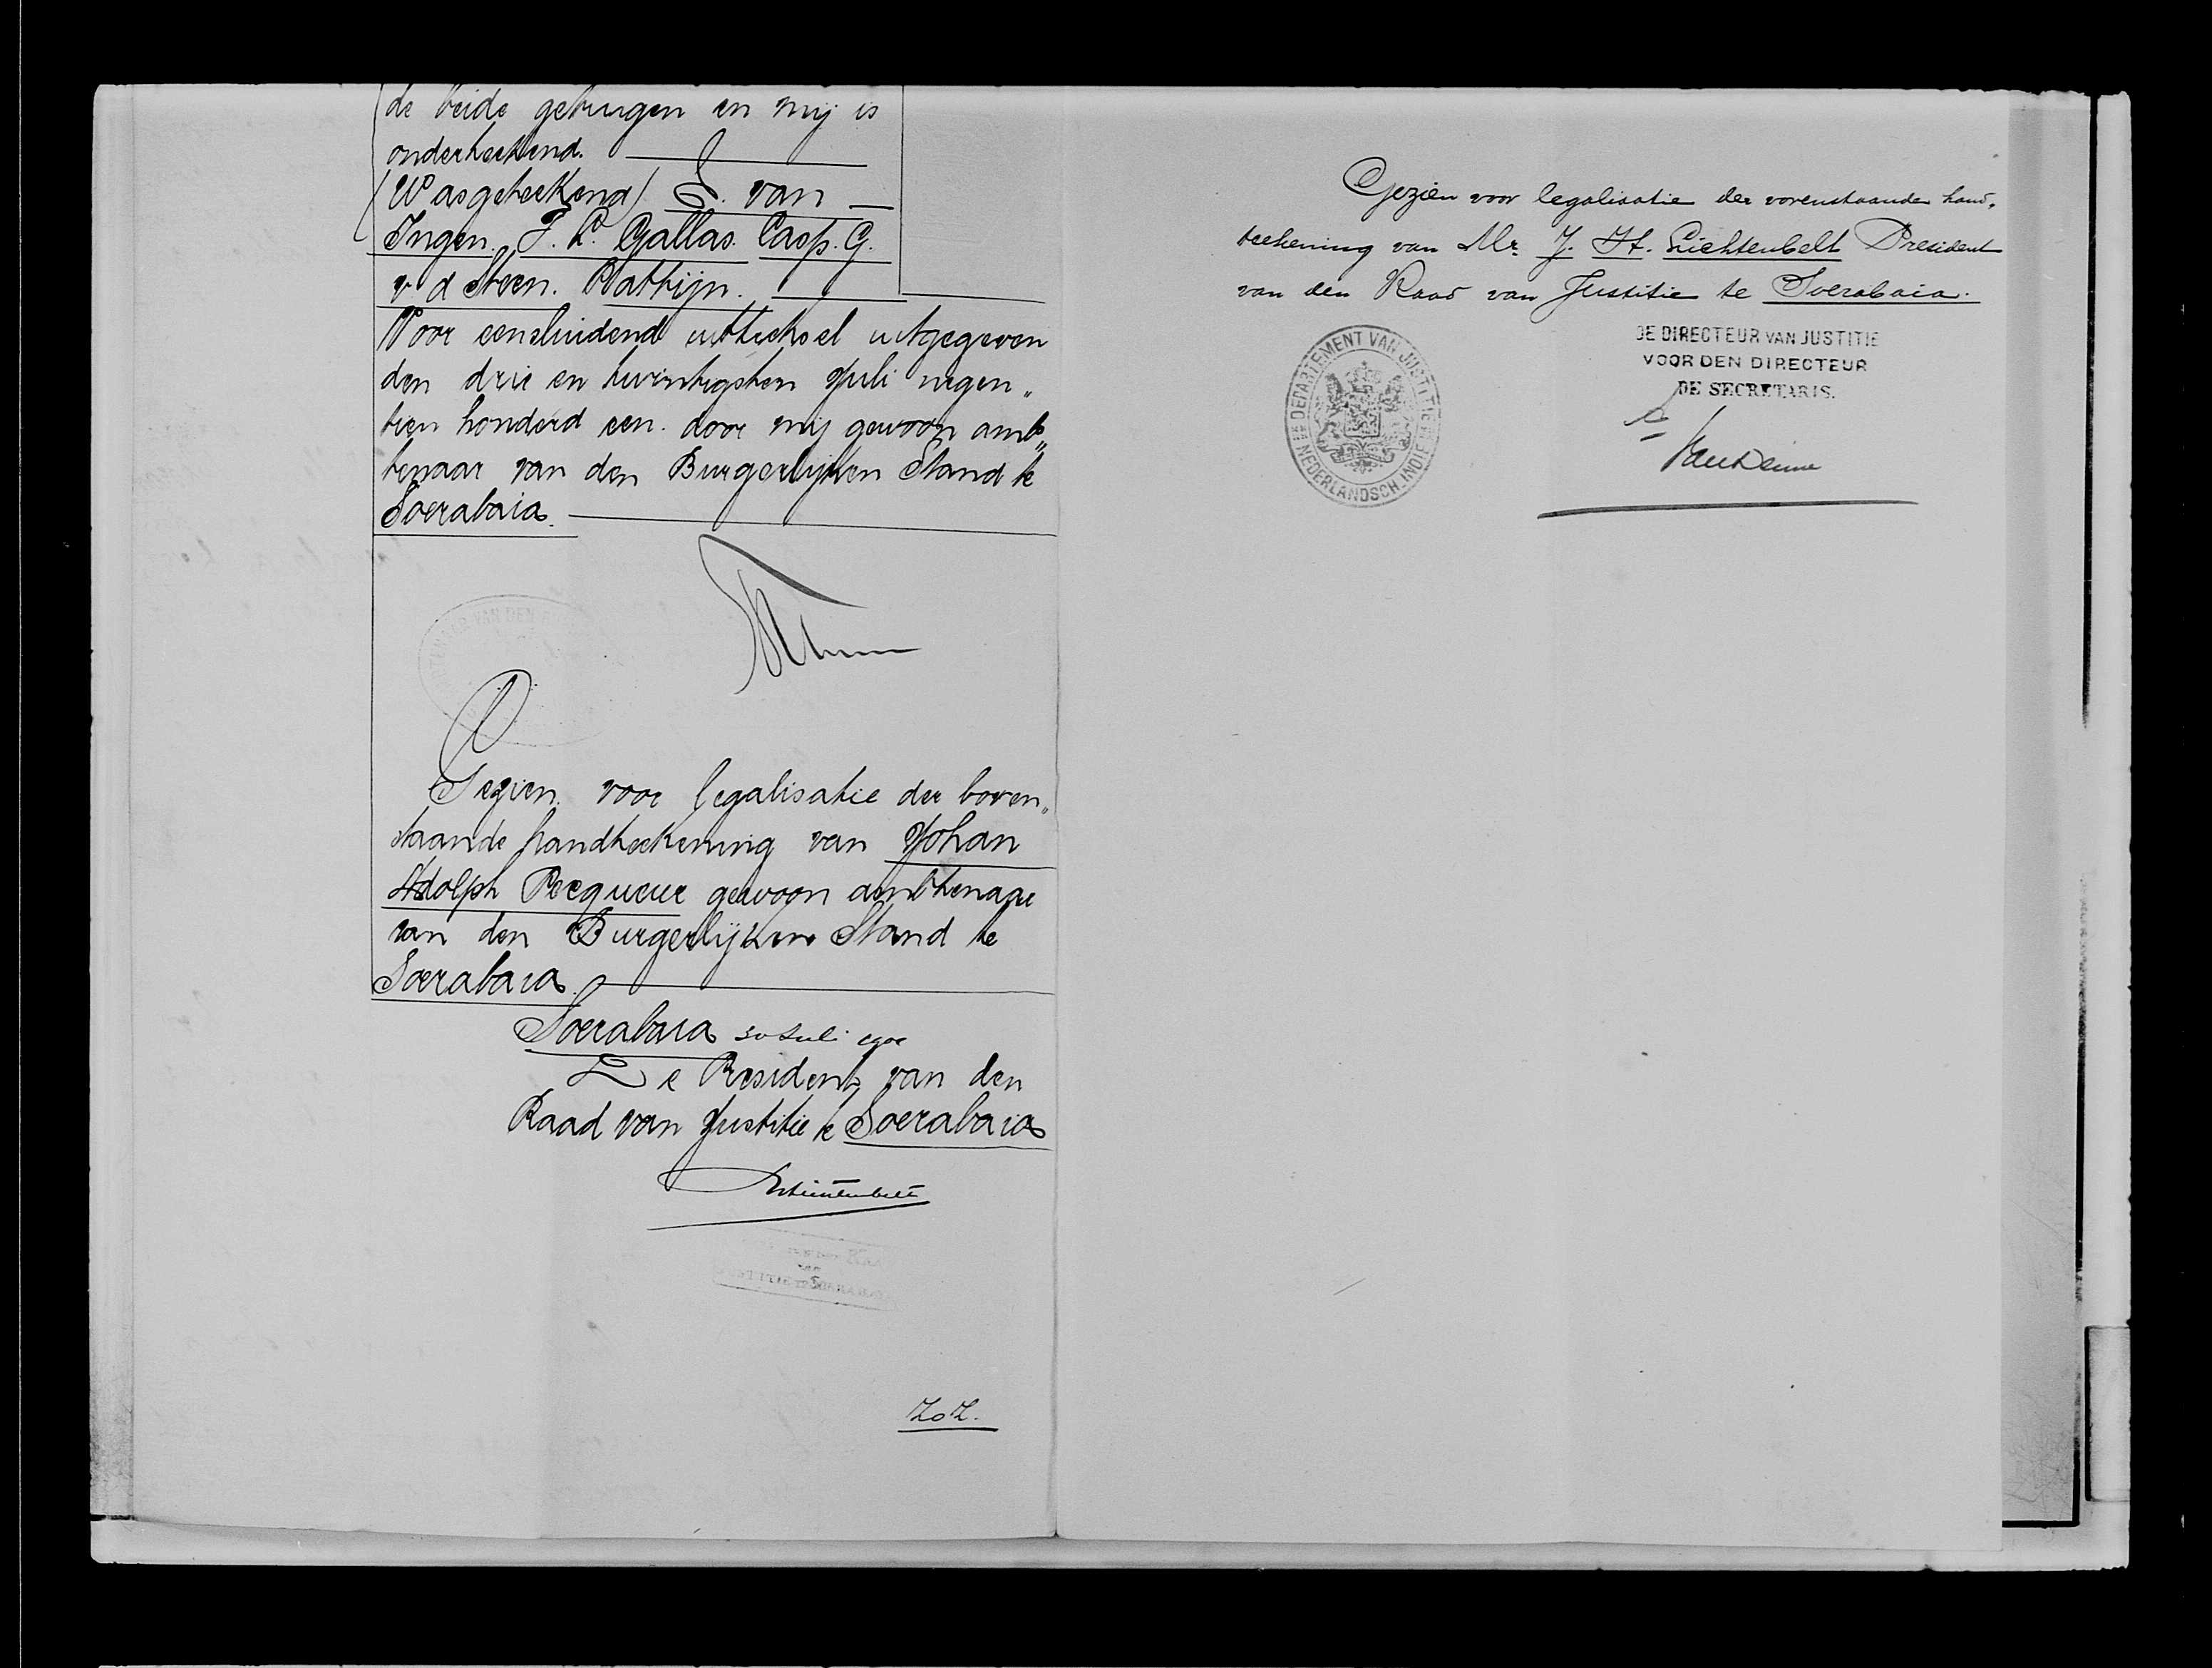 de beide getuigen en mij is
onderteekend.
(Was geteekend) L. van
Ingen. F. L. Gallas. Casp. G.
v d Steen. Rattijn.
Voor eensluidend uittreksel uitgegeven
den drie en twintigsten Juli negen„
tien honderd een. door mij gewoon amb„
tenaar van den Burgerlijken Stand te
Soerabaia.
VAN DEN
Gezien voor legalisatie der boven„
staande handteekening van Johan
Adolph Pecqueur gewoon ambtenaar
van den Burgerlijken Stand te
Soerabaia.
Soerabaia 30 Juli 1901
De President van den
Raad van Justitie te Soerabaia
Lichtenbelt
ZoZ.
Gezien voor legalisatie der vorenstaande hand„
teekening van Mr. J. H. Lichtenbelt President
van den Raad van Justitie te Soerabaia.
DEPARTEMENT VAN JUSTITIE
NEDERLANDSCH-INDIE
DE DIRECTEUR VAN JUSTITIE
VOOR DEN DIRECTEUR
DE SECRETARIS.